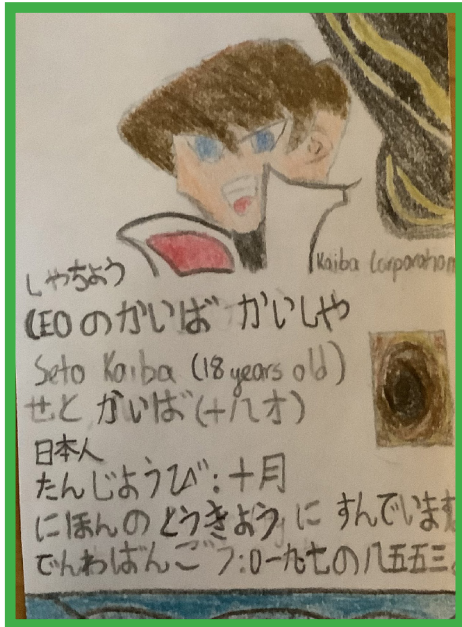 Kaiba Corporation
しゃちょう
CEOのかいば かいしゃ
Seto Kaiba (18 years old)
せと かいば(十八才)
日本人
たんじょうび:十月
にほんのとうきょうにすんでいます
でんわばんごう:0一九七の八五五三